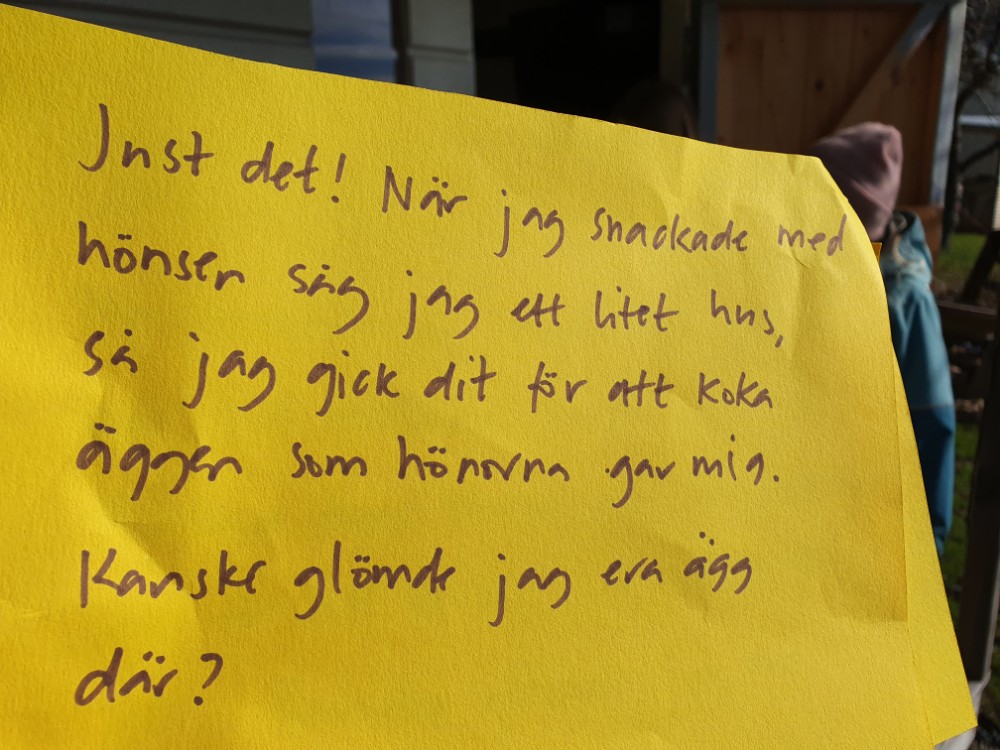 Just det! När jag snackade med
hönsen såg jag ett litet hus,
så jag gick dit för att koka
äggen som hönorna gav mig.
Kanske glömde jag era ägg
där?